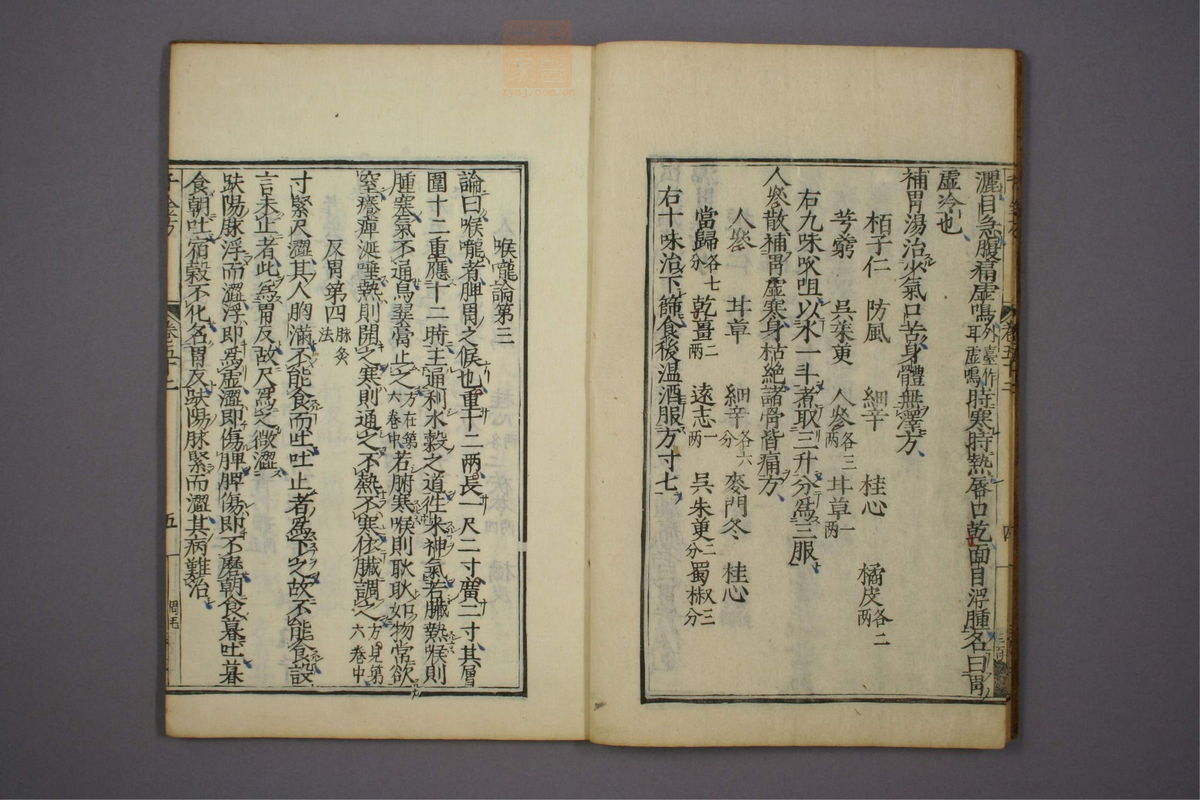 灑目急腹痛虛鳴外臺作耳虛鳴時寒時熱唇口乾面目浮腫名曰胃
虛冷也
補胃湯治少氣口苦身體無澤方
栢子仁 防風 細辛 桂心 橘皮各二兩
芎藭 吳茱萸 人參各三兩 甘草一兩
右九味㕮咀以水一斗煮取三升分爲三服
人參散補胃虛寒身枯絶諸骨皆痛方
人參 甘草 細辛各六分 麥門冬 桂心
當歸各七分 乾薑二兩 遠志一兩 吳朱萸二分 蜀椒三分
右十味治下篩食後温酒服方寸七
卷五十二
四
喉嚨論第三
論曰喉嚨者脾胃之候也重十二兩長一尺二寸廣二寸其層
圍十二重應十二時主通利水穀之道往來神氣若臟熱喉則
腫塞氣不通烏翣膏止之方在第六卷中若腑寒喉則耿耿如物常欲
窒癢痺涎唾熱則開之寒則通之不熱不寒依臟調之方見第六卷中
反胃第四脉灸法
寸緊尺澀其人胸滿不能食而吐吐止者爲下之故不能食設
言未止者此爲胃反故尺爲之微澀
趺陽脉浮而澀浮即爲虛澀即傷脾脾傷即不磨朝食暮吐暮
食朝吐宿穀不化名胃反趺陽脉緊而澀其病難治
千金方
卷五十二
五